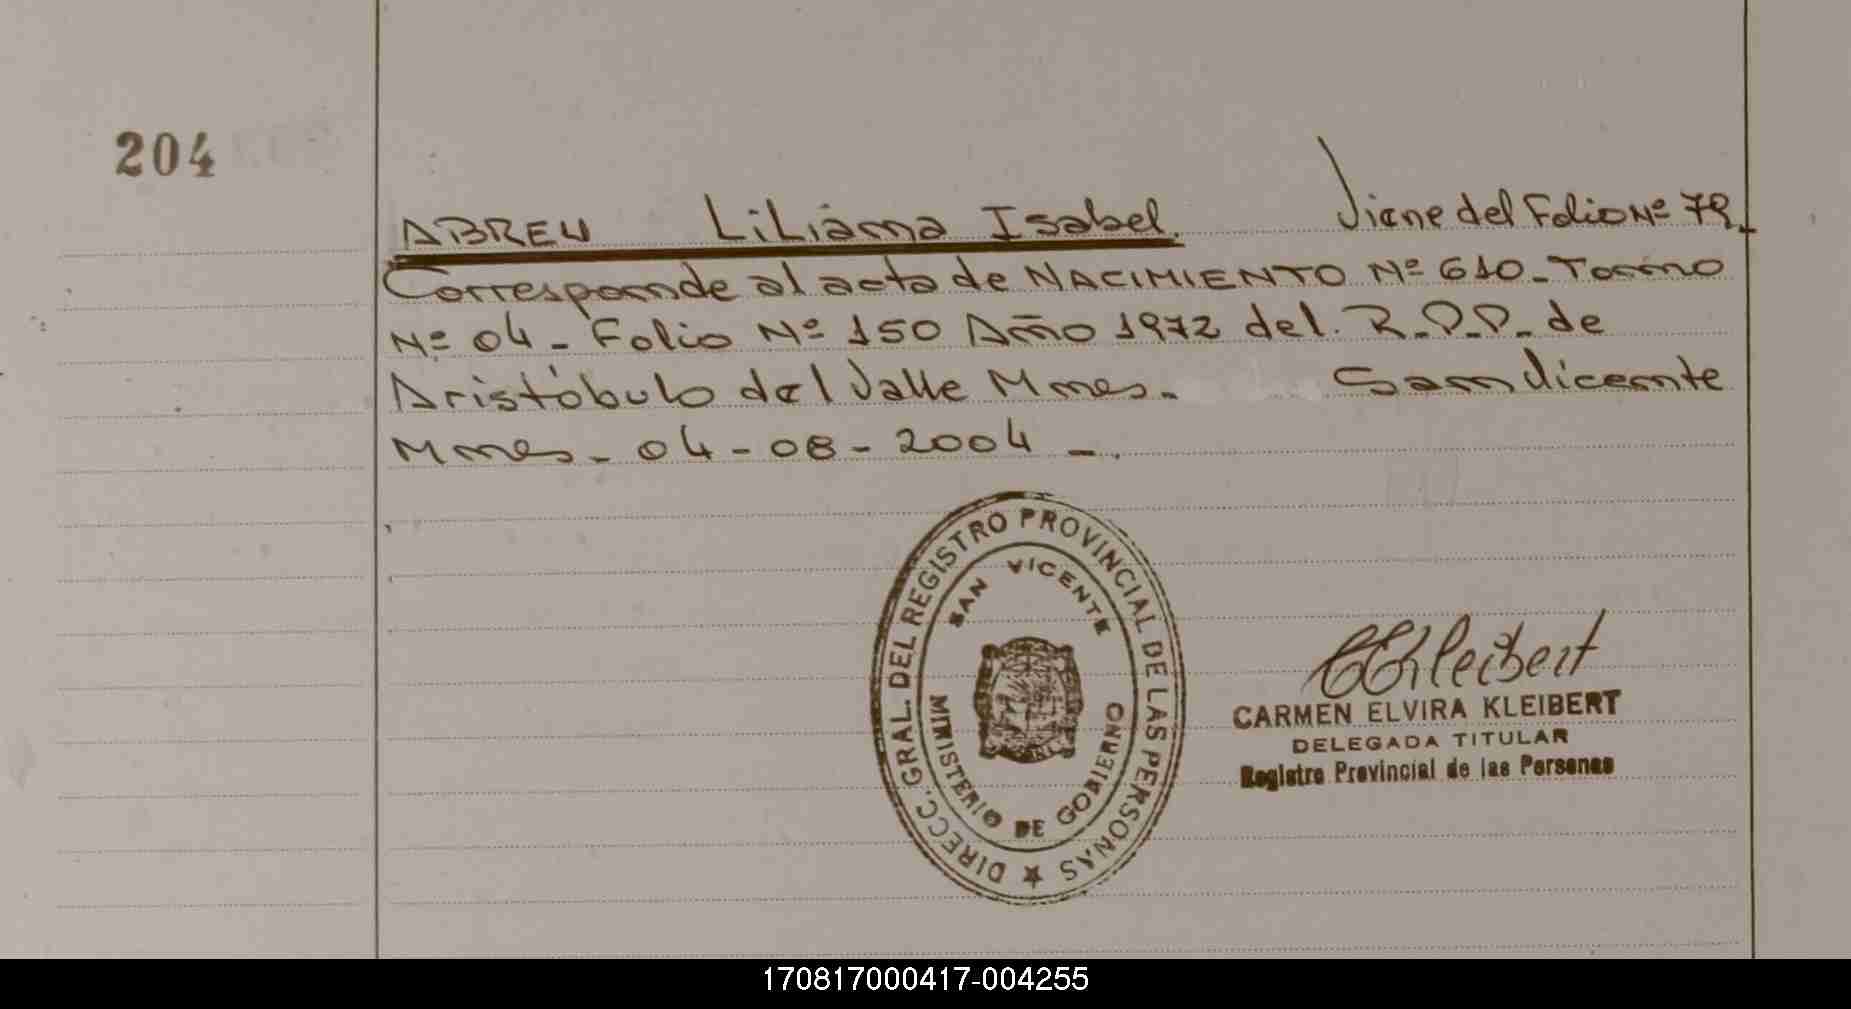 204
ABREU Liliana Isabel. Viene del Folio Nº 79.
Corresponde al acta de NACIMIENTO Nº 610 - Tomo
Nº 04 - Folio Nº 150 Año 1972 del R.P.P. de
Aristóbulo del Valle Mnes. San Vicente
Mnes - 04-08-2004 -.
DIRECC. GRAL. DEL REGISTRO PROVINCIAL DE LAS PERSONAS
SAN VICENTE
MINISTERIO DE GOBIERNO
CEKleibert
CARMEN ELVIRA KLEIBERT
DELEGADA TITULAR
Registro Provincial de las Personas
170817000417-004255